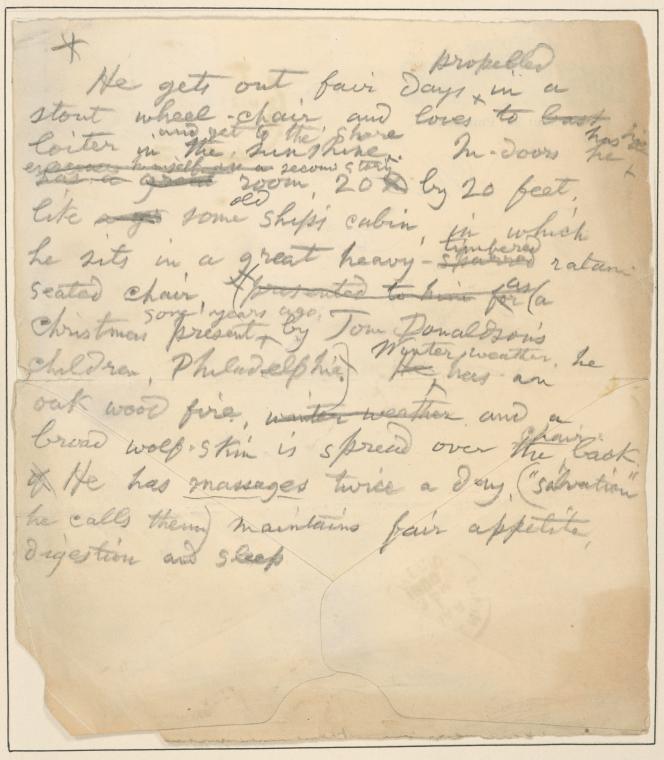 propelled
He gets out fair days in a
stout wheel-chair and loves to bast
and get to the shore
loiter in the sunshine. In-doors he
has his
himself in a second story
has a great room, 20 X by 20 feet,
old
like a some ship's cabin, in which
timbered
he sits in a great heavy-sparred ratan
seated chair, (presented to him for (a
as
some years ago,
Christmas present by Tom Donaldson's
Winter weather, he
children, Philadelphia) He has an
oak wood fire, winter weather and a
chair
broad wolf-skin is spread over the back.
He has massages twice a day, ("salvation"
he calls them) maintains fair appetite,
digestion and sleep